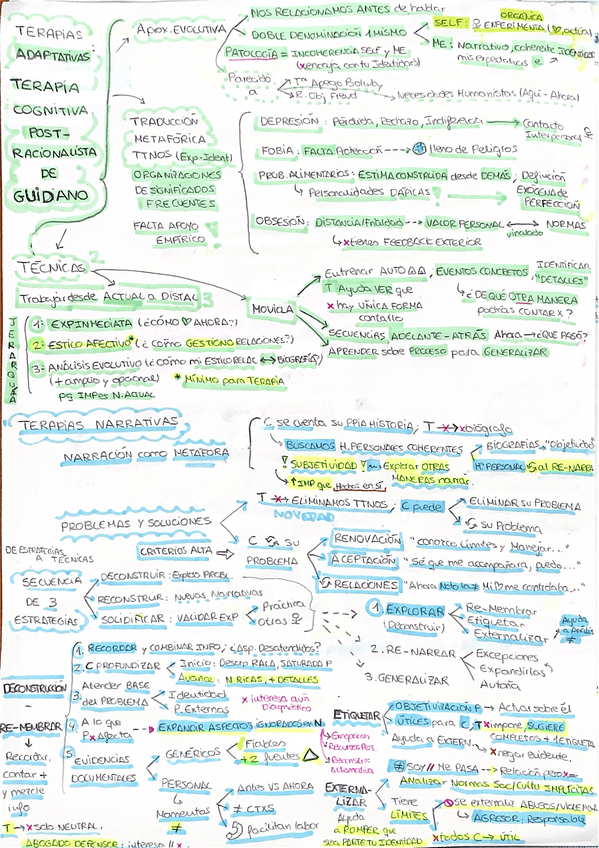 TERAPIAS
ADAPTATIVAS:
TERAPIA
COGNITIVA
POST-
RACIONALISTA
DE
GUIDIANO
Aprox. EVOLUTIVA
NOS RELACIONAMOS ANTES de hablar
DOBLE DENOMINACIÓN 1 MISMO
SELF:
ORGÁNICA
EXPERIMENTA
ME: Narrativo, coherente IDENTIDAD
mis expectativas
PATOLOGÍA = INCOHERENCIA SELF y ME
(x encaja con tu Identidad)
Parecido
a
Tª Apego Bolwby
R. Obj Freud
Necesidades Humanistas (Aquí - Ahora)
TRADUCCIÓN
METAFÓRICA
TTNOS (Exp-Ident)
ORGANIZACIONES
DE SIGNIFICADOS
FRECUENTES
FALTA APOYO
EMPÍRICO
DEPRESIÓN: Pérdida, Rechazo, Indiferencia
Contacto
Interpersonal
FOBIA: FALTA Protección
lleno de Peligros
PROB. ALIMENTARIOS: ESTIMA CONSTRUIDA desde DEMÁS, Definición
EXÓGENA DE
PERFECCIÓN
Personalidades DÁPICAS
OBSESIÓN: DISTANCIA/Frialdad
VALOR PERSONAL
NORMAS
vinculado
x tienes FEEDBACK EXTERIOR
TÉCNICAS
Trabajar desde ACTUAL a DISTAL
MOVIOLA
Entrenar AUTO
EVENTOS CONCRETOS
IDENTIFICAR
"DETALLES"
T Ayuda VER que
x hay ÚNICA FORMA
contarlo
¿DE QUÉ OTRA MANERA
podrías CONTAR X?
SECUENCIAS ADELANTE - ATRÁS Ahora → ¿QUÉ PASÓ?
APRENDER sobre PROCESO para GENERALIZAR
JERARQUÍA
1: EXP INMEDIATA (¿CÓMO AHORA?)
2: ESTILO AFECTIVO* (¿cómo GESTIONO RELACIONES?)
3: ANÁLISIS EVOLUTIVO (¿cómo mi ESTILO RELAC ↔ BIOGRAFÍA?)
(+ amplio y opcional) * MÍNIMO para TERAPIA
TERAPIAS NARRATIVAS
NARRACIÓN como METÁFORA
C se cuenta su PPIA HISTORIA; T → x biógrafo
BUSCAMOS H. PERSONALES COHERENTES
BIOGRAFÍAS "objetivas"
Hª PERSONAL al RE-NARRAR
SUBJETIVIDAD
Explorar OTRAS
MANERAS narrar.
↑ IMP que Hechos en Sí,
PROBLEMAS Y SOLUCIONES
T → ELIMINAMOS TTNOS, C puede
NOVEDAD
ELIMINAR SU PROBLEMA
su Problema
CRITERIOS ALTA
C su
PROBLEMA
RENOVACIÓN "conozco límites y Manejar..."
ACEPTACIÓN "Sé que me acompañará, puedo..."
RELACIONES "Ahora
DE ESTRATEGIAS
A TÉCNICAS
SECUENCIA
DE 3
ESTRATEGIAS
DECONSTRUIR: Explos PROBL
RECONSTRUIR: Nuevas Narrativas
SOLIDIFICAR: VALIDAR EXP
Práctica
Otras
1. EXPLORAR
(Deconstruir)
Re-Membrar
Etiquetar
Externalizar
Ayuda
2. RE-NARRAR
Excepciones
Expandirlas
Autoría
3. GENERALIZAR
DECONSTRUCCIÓN -
RE-MEMBRAR
Recordar,
contar +
y mezcle
info
1. RECORDAR y COMBINAR INFO; ¿Asp. Desatendidos?
2. C PROFUNDIZAR
Inicio: Descrip RALA, SATURADA P
Avance: N RICAS, + DETALLES
3. Atender BASE
del PROBLEMA
Identidad
P. Externas
x interesa aún
Diagnóstico
4. A lo que
P x afecta
EXPANDIR ASPECTOS IGNORADOS en N.
5. EVIDENCIAS
DOCUMENTALES
GENÉRICOS
Fiables
+2 fuentes
PERSONAL
Momentos
≠
Antes VS AHORA
≠ CTXS
Facilitan labor
T → x solo NEUTRAL,
ABOGADO DEFENSOR: interesa
ETIQUETAR
OBJETIVIZACIÓN P - Actuar sobre él
ÚTILES para C, T x impone, SUGIERE
COMPLETOS + 1 ETIQUETA
Ayuda a EXTERN.
x negar Evidente.
EXTERNA-
LIZAR
Ayuda
a ROMPER que
sea PARTE TU IDENTIDAD
≠ SOY // ME PASA → Relación pero x =
Analizar Normas Soc/Cultu IMPLÍCITAS
Tiene
LÍMITES
x se externaliza ABUSOS/VIOLENCIA
AGRESOR: Responsable
x todos C → ÚTIL